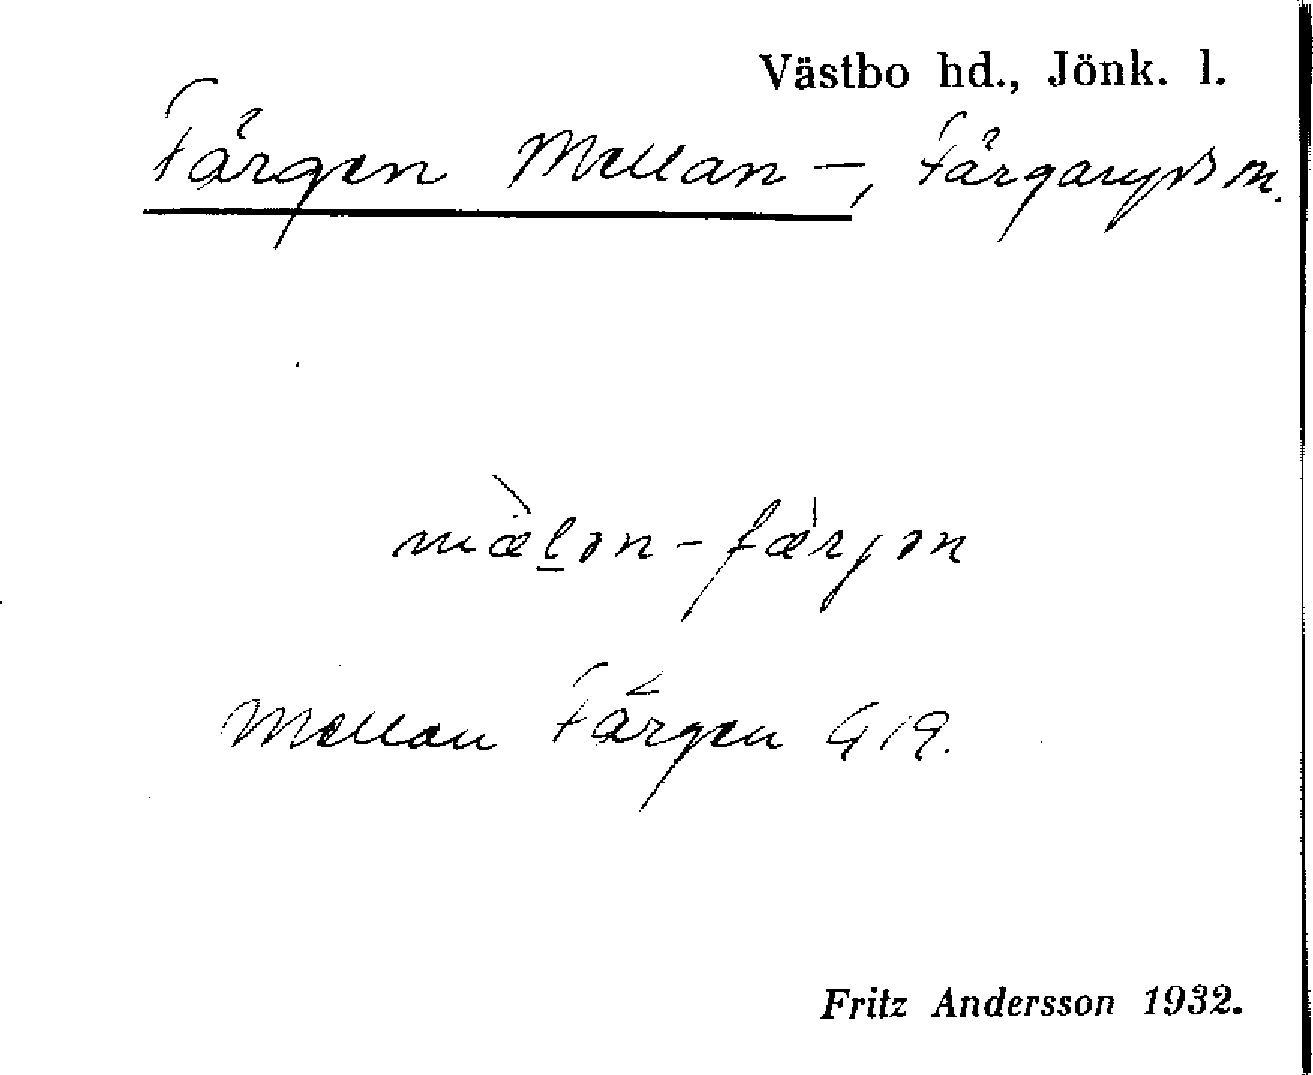 Västbo hd., Jönk. l.
Färgen Mellan –, Färgaryds sn.
mæ̀lən - fæ̀rjən
Mellan Färgen G 19.
Fritz Andersson 1932.